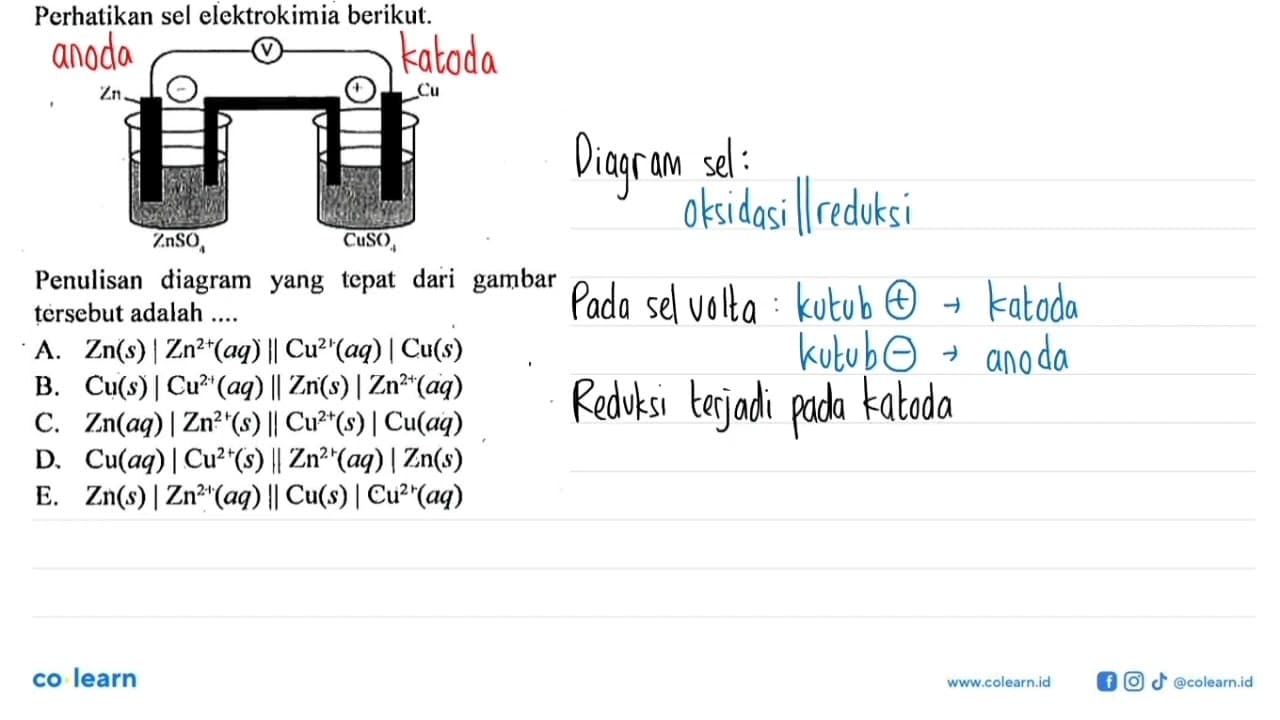 Perhatikan sel elektrokimia berikut.
anoda
V
katoda
Zn
−
+
Cu
ZnSO₄
CuSO₄
Penulisan diagram yang tepat dari gambar
tersebut adalah ....
A. Zn(s) | Zn²⁺(aq) || Cu²⁺(aq) | Cu(s)
B. Cu(s) | Cu²⁺(aq) || Zn(s) | Zn²⁺(aq)
C. Zn(aq) | Zn²⁺(s) || Cu²⁺(s) | Cu(aq)
D. Cu(aq) | Cu²⁺(s) || Zn²⁺(aq) | Zn(s)
E. Zn(s) | Zn²⁺(aq) || Cu(s) | Cu²⁺(aq)
Diagram sel:
oksidasi || reduksi
Pada sel volta : kutub ⊕ → katoda
kutub ⊖ → anoda
Reduksi terjadi pada katoda
co learn
www.colearn.id
@colearn.id